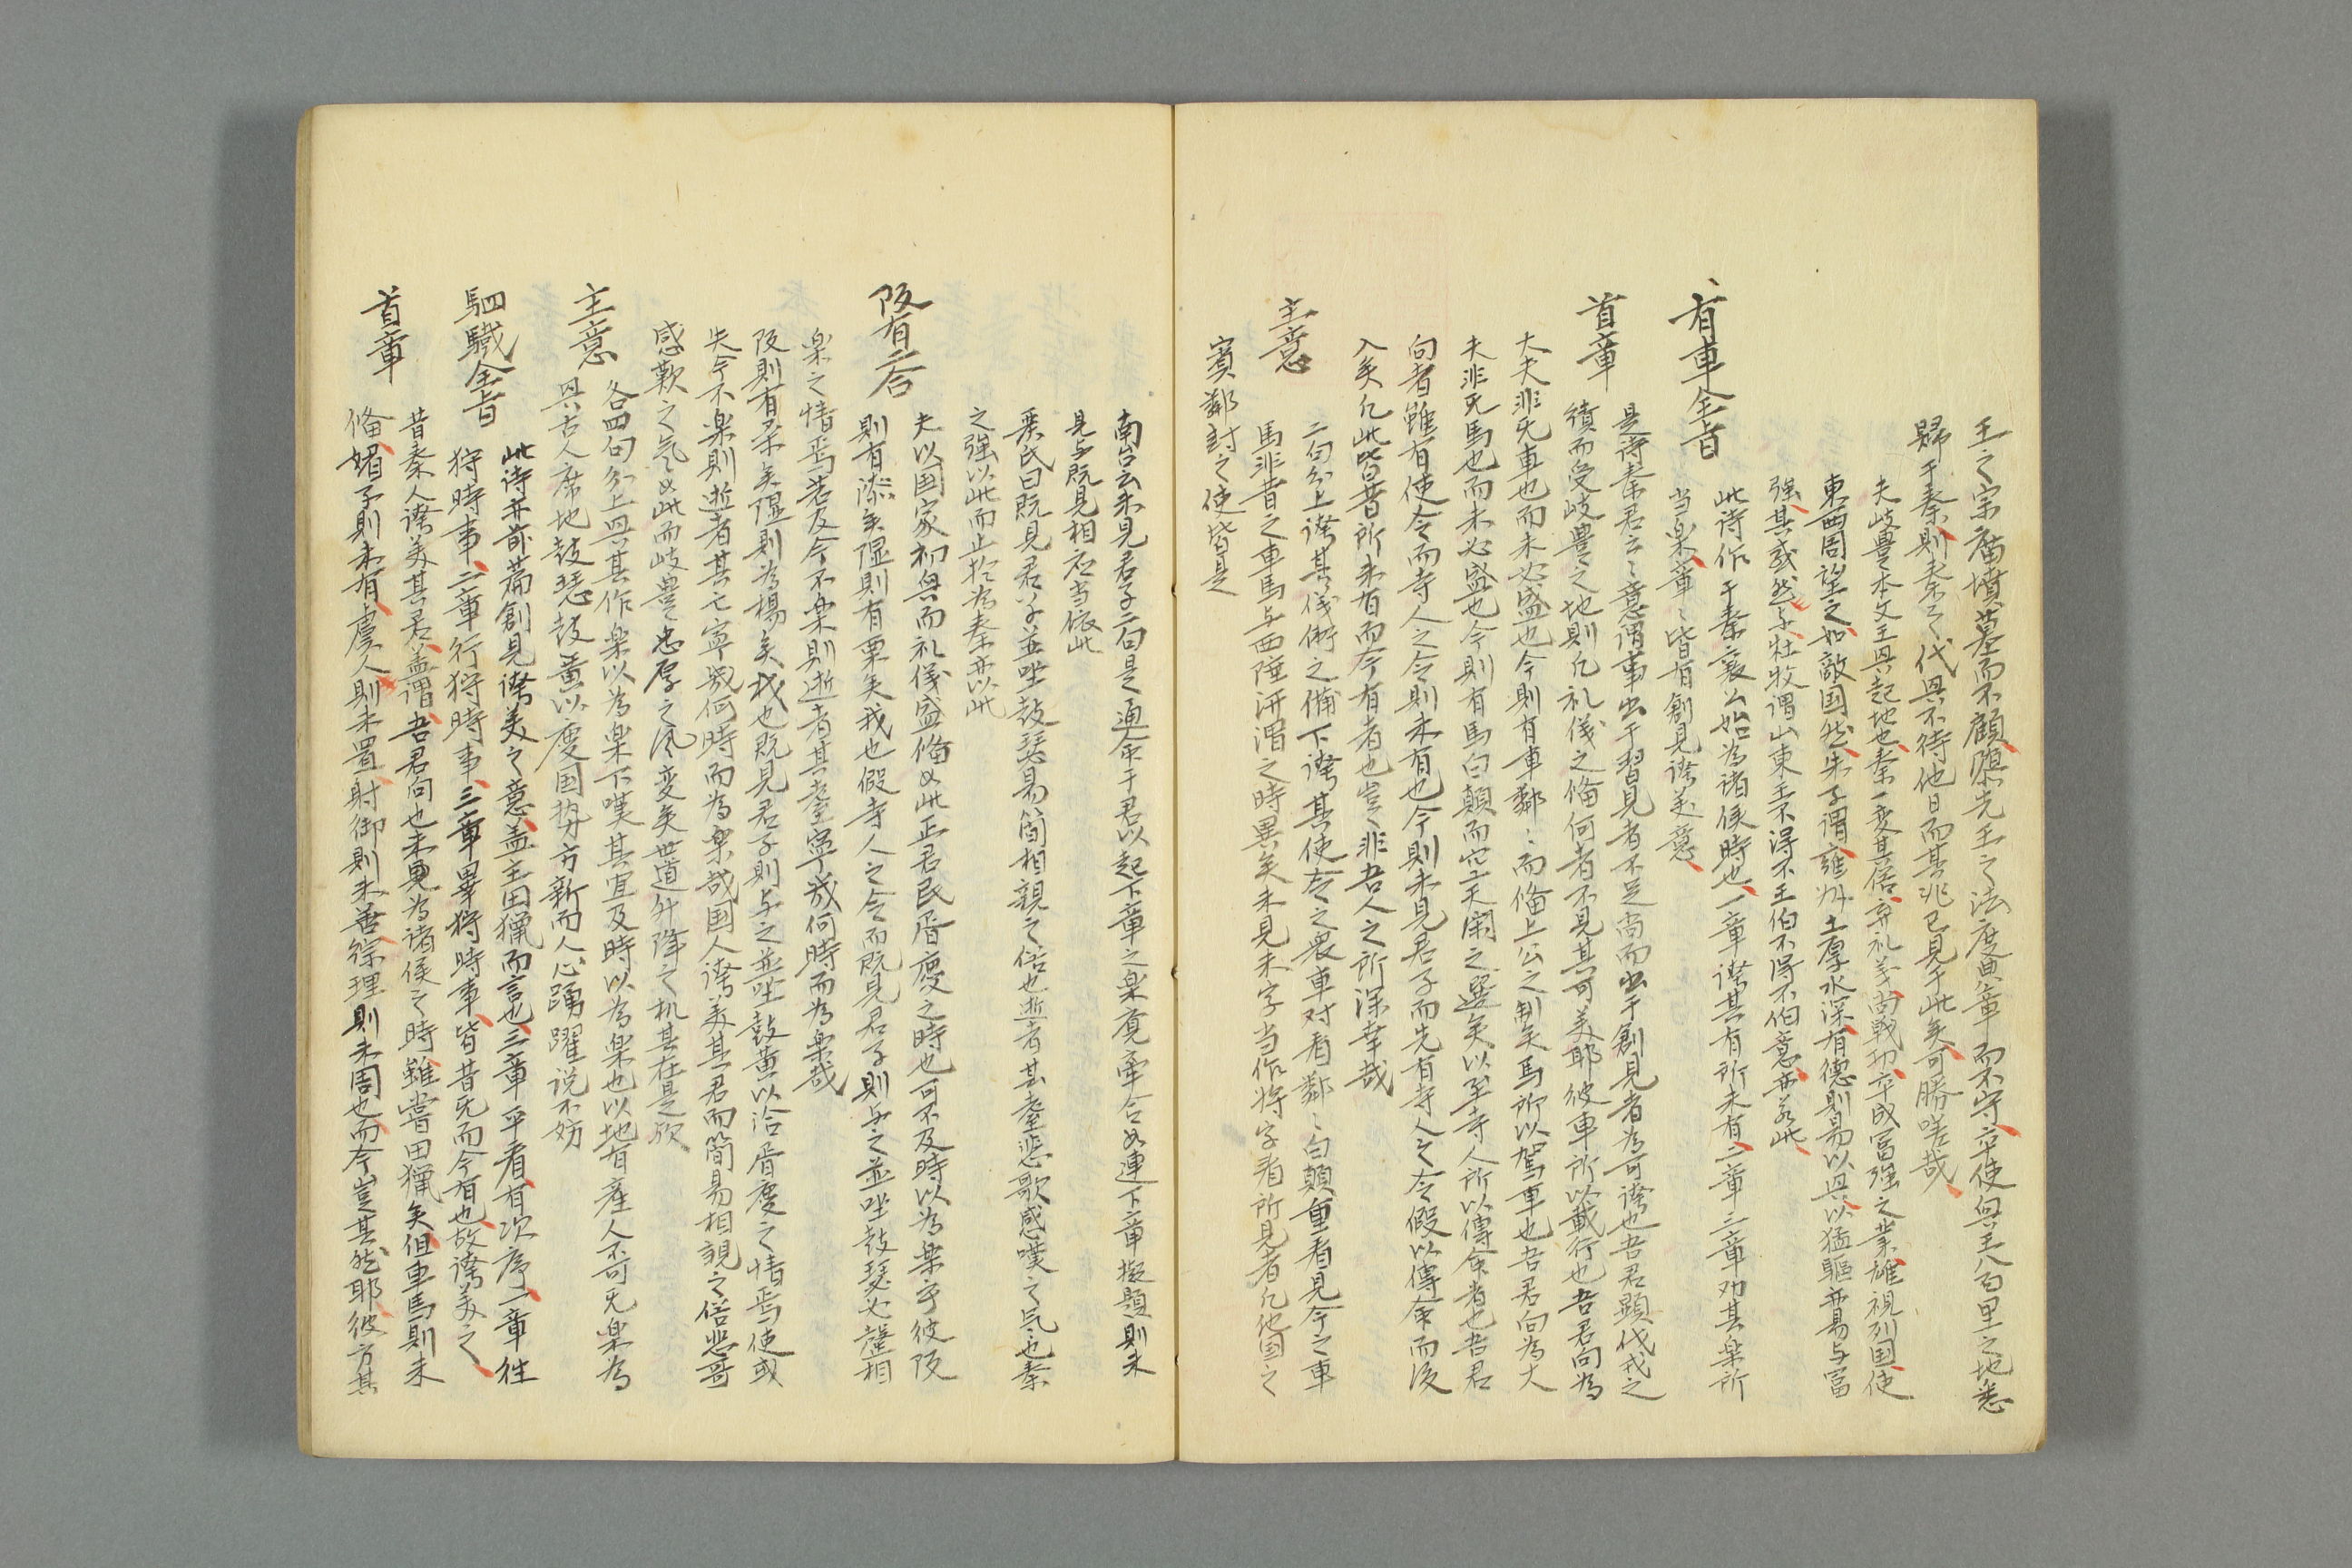 王之宗庙墳墓而不顧隳先王之法度典章而不守卒使興王八百里之地悉
歸于秦則秦之代興不待他日而其兆已見于此矣可勝嗟哉
夫岐豊本文王興起地也秦一変其俗弃礼義尚戦功卒成富强之業雄視列国使
東西周望之如敵国然朱子謂雍州土厚水深有德則易以興以猛驅亦易与富
强其或然与杜牧謂山東王不得不王伯不得不伯意亦若此
此詩作于秦襄公始為諸侯時也一章誇其有所未有二章三章劝其楽所
当楽章〻皆有創見誇美意
有車全旨
是詩秦君云〻意謂事出于習見者不足尚而出于創見者為可誇也吾君顕伐戎之
首章
績而受岐豊之地則凡礼儀之俻何者不見其可美耶彼車所以載行也吾君向為
大夫非无車也而未必盛也今則有車鄰〻而俻上公之制矣馬所以駕車也吾君向為大
夫非无馬也而未必盛也今則有馬白顛而空天閑之選矣以至寺人所以傳命者也吾君
向者雖有使令而寺人之令則未有也今則未見君子而先有寺人之令假以傳命而後
入矣凡此皆昔所未有而今有者也豈非吾人之所深幸哉
二句分上誇其儀衛之俻下誇其使令之衆車对看鄰〻白顛重看見今之車
主意
馬非昔之車馬与西陲汧渭之時異矣未見未字当作将字看所見者凡他国之
賓鄰封之使皆是
南台云未見君子二句是通命于君以起下章之楽覔牽合如連下二章擬題則未
見与既見相应当依此
裴氏曰既見君子並坐鼓瑟易簡相親之俗也逝者其耋悲歌感嘆之気也秦
之强以此而止於為秦亦以此
阪有二合
夫以国家初興而礼儀盛俻如此正君民胥慶之時也可不及時以為楽乎彼阪
則有漆矣隰則有栗矣我也假寺人之令而既見君子則与之並坐鼓瑟以謹相
楽之情焉若及今不楽則逝者其耋寧幾何時而為楽哉
阪則有桑矣隰則為楊矣我也既見君子則与之並坐鼓簧以洽胥慶之情焉使或
失今不楽則逝者其亡寧幾何時而為楽哉国人誇美其君而簡易相親之俗悲哥
感歎之気〻如此而岐豊忠厚之風変矣世道升降之机其在是欤
主意
各四句分上興其作楽以為楽下嘆其宜及時以為楽也以地有産人不可无楽為
興古人席地鼓瑟鼓簧以慶国势方新而人心踴躍说不妨
駟驖全旨
此詩亦前篇創見誇美之意盖主田獵而言也三章平看有次序一章往
狩時事二章行狩時事三章畢狩時事皆昔无而今有也故誇美之
首章
昔秦人誇美其君盖謂吾君向也未見為諸侯之時雖嘗田獵矣但車馬則未
俻媚子則未有虞人則未置射御則未善綜理則未周也而今豈其然耶彼方其